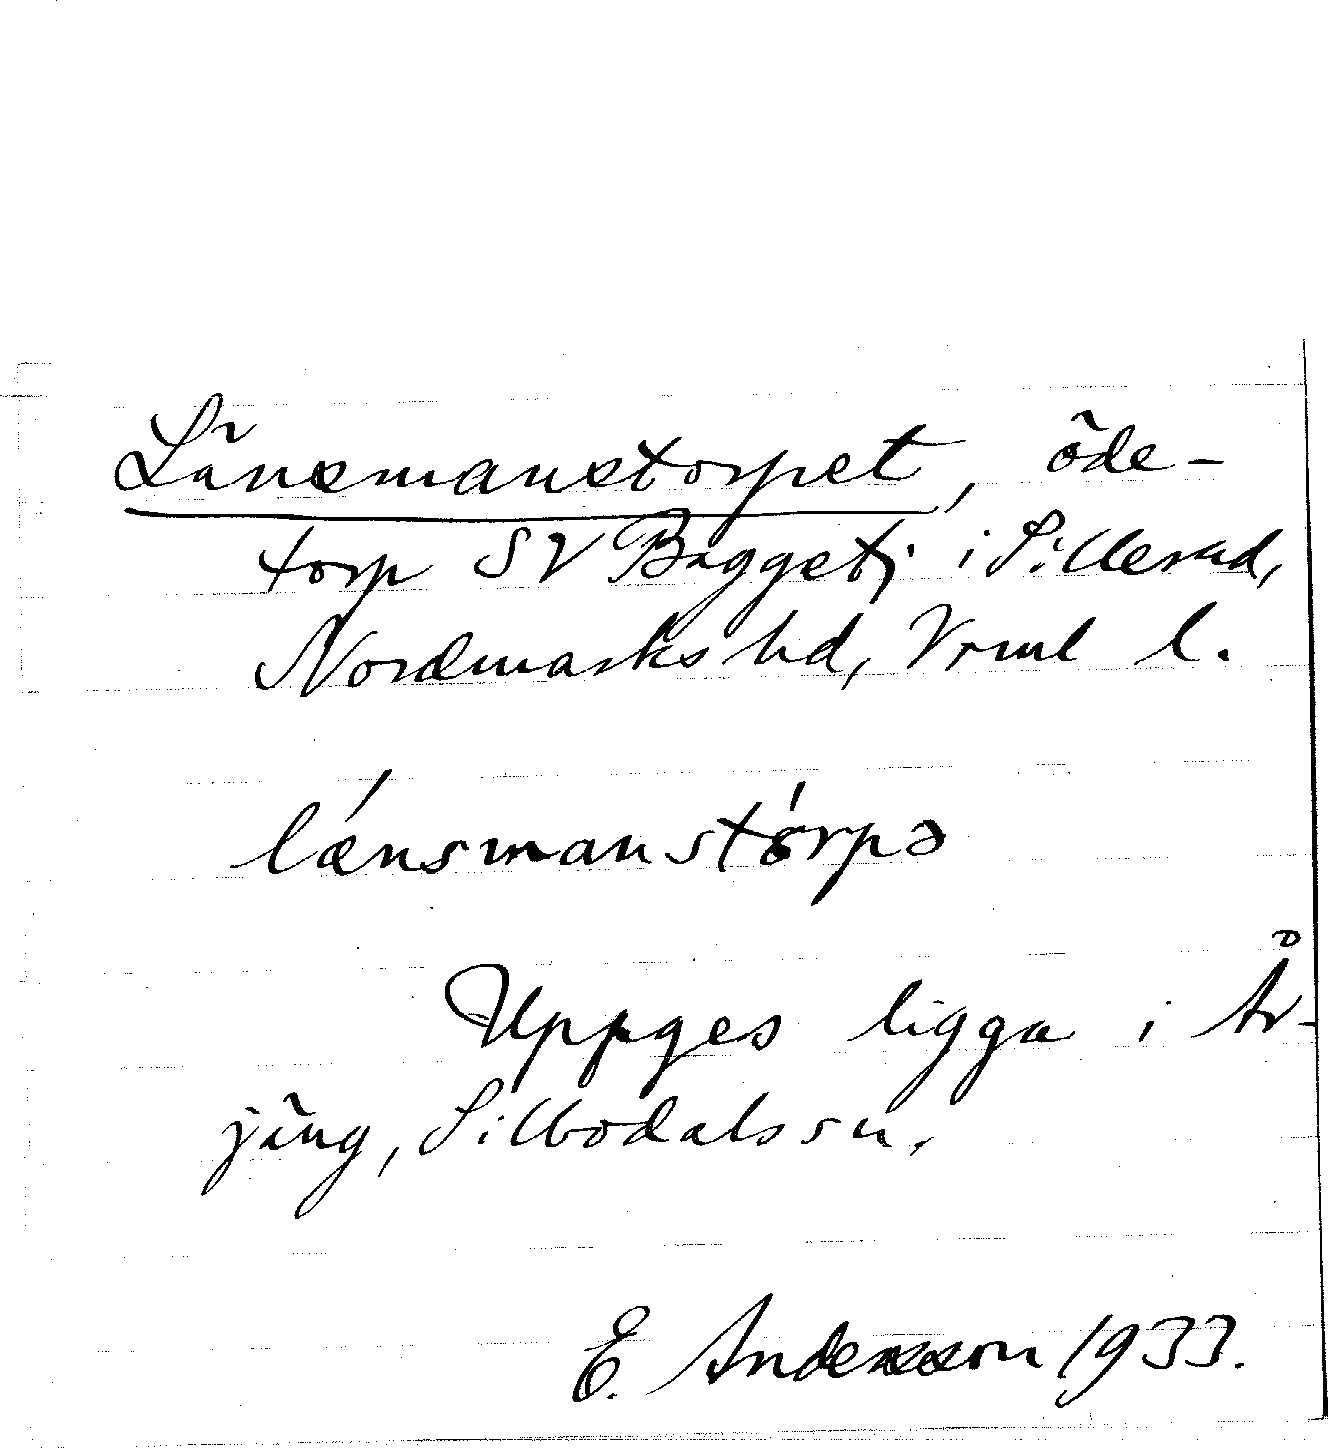 Länsmanstorpet, öde-
torp SV Baggetj. i Sillerud,
Nordmarks hd, Vrml l.
lǽnsmanstórpə
Uppges ligga i År-
jäng, Silbodals sn.
E. Andersson 1933.